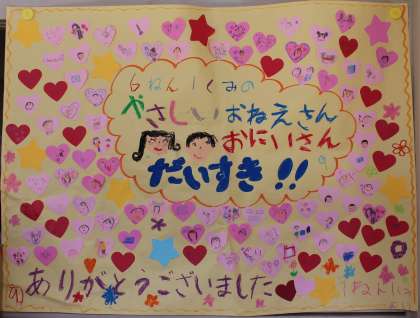 6ねん1くみの
やさしいおねえさん
おにいさん
だいすき!!
ありがとうございました